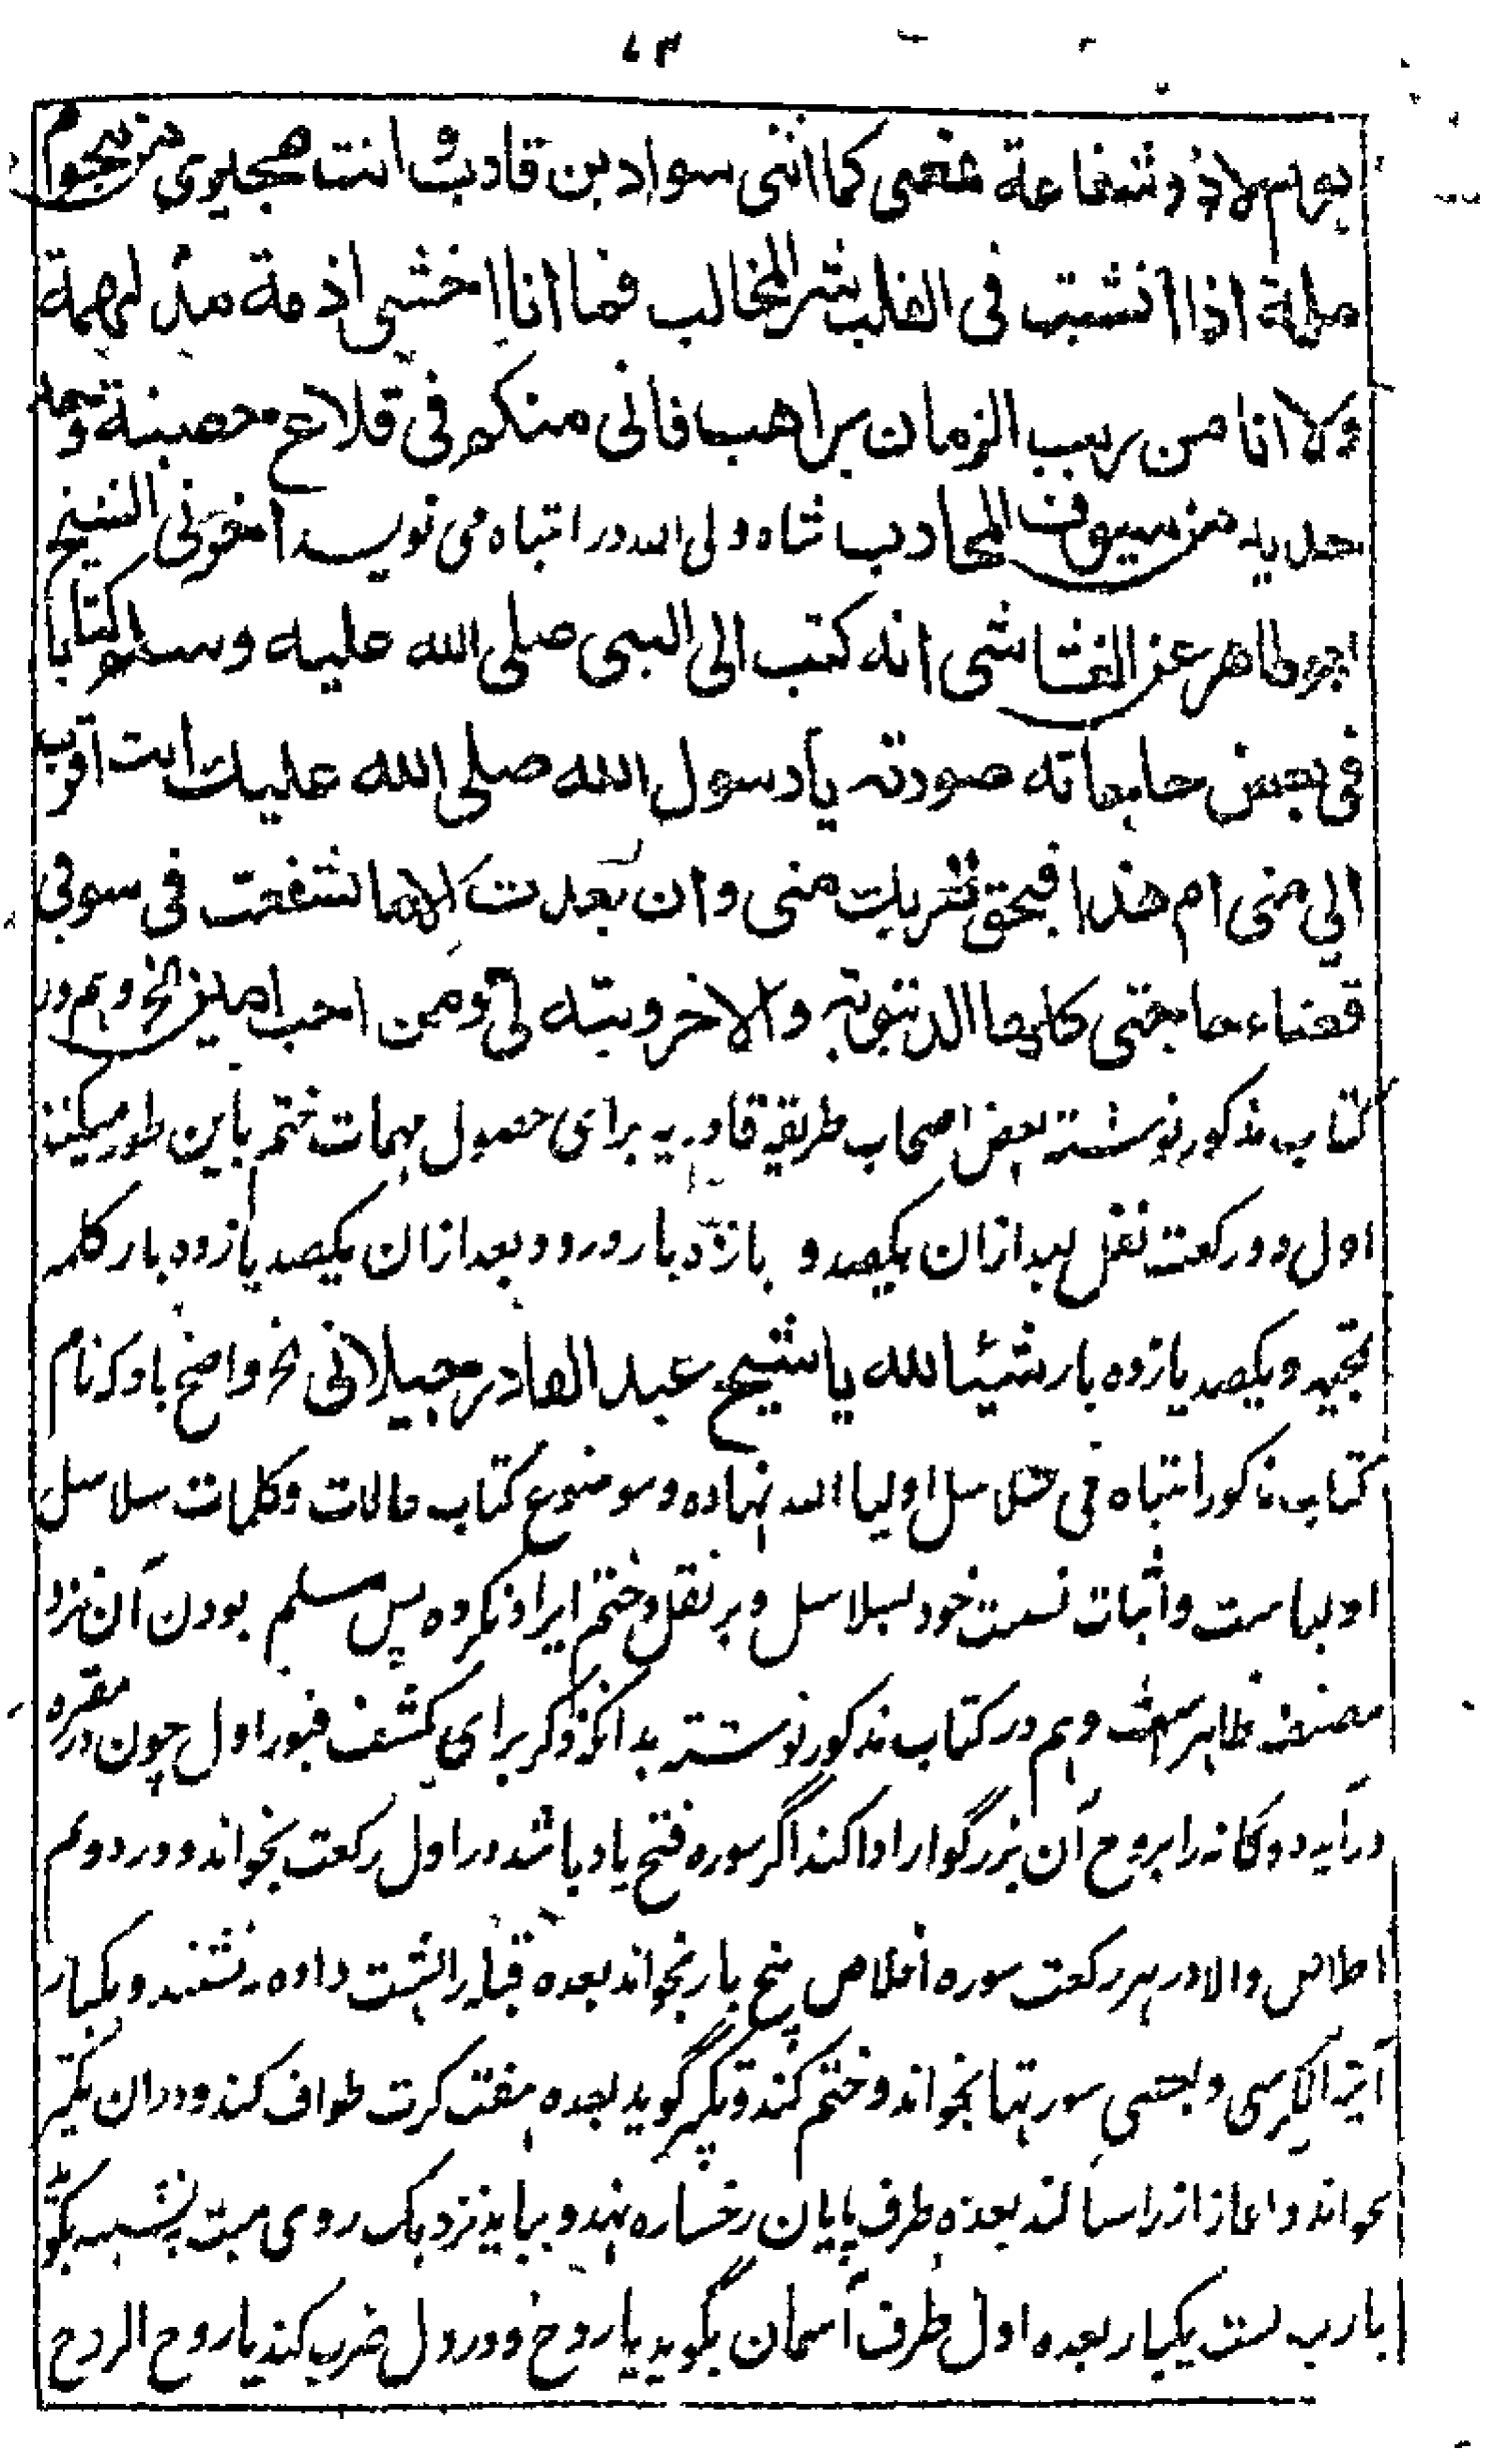 ۷۳
يوم لا ذو شفاعة فمعنى كما اثنى سواد بن قارب وانت مجيرى من هجوم
ملمة اذا انشبت فى القلب شر المخالب فما انا اخشى ازمة مدلهمة
ولا انا من ريب الزمان براهب فانى منكم فى قلاع حصينة وحد
حديد من سيوف المحارب شاه ولى الله در انتباه مى نويسد اخبرنى الشيخ
ابو طاهر عن القشاشى انه كتب الى النبى صلى الله عليه وسلم كتابا
فى بعض حاجاته صورته يا رسول الله صلى الله عليك انت اقرب
الي منى ام هذا فبحق قربك منى وان بعدت الا ما شفعت فى سوفى
قضاء حاجتى كلها الدنيوية والاخروية لى ومن احب امين الخ وہم در
کتاب مذکور نوشتہ بعض اصحاب طریقہ قادریہ برای حصول مہمات ختم باین طور میکنند
اول دو رکعت نفل بعد ازان یکصد و یازدہ بار درود و بعد ازان یکصد یازدہ بار کلمہ
تمجید و یکصد یازدہ بار شيئا لله يا شيخ عبد القادر جيلانى الخ واضح باد کہ نام
کتاب مذکور انتباہ فی سلاسل اولیا اللہ نہادہ و موضوع کتاب حالات و کلمات سلاسل
اولیاست و اثبات نسبت خود بسلاسل و بر نقل ختم ایراد نکردہ پس مسلم بودن آن نزد
مصنف ظاہرست وہم در کتاب مذکور نوشتہ بدانکہ ذکر برای کشف قبور اول چون در مقبرہ
در آید دوگانہ را بروح آن بزرگوار ادا کند اگر سورہ فتح یاد باشد در اول رکعت بخواند و در دوم
اخلاص والا در ہر رکعت سورہ اخلاص پنج بار بخواند بعدہ قبلہ را پشت دادہ بنشیند و یکبار
آیة الکرسی و بعضی سورتہا بخواند و ختم کند و تکبیر گوید بعدہ ہفت کرت طواف کند و دران تکبیر
بخواند و آغاز از راست کند بعدہ طرف پایان رخسارہ نہد و بیاید نزدیک روی میت بنشیند بگوید
یا رب بست یکبار بعدہ اول طرف آسمان بگوید یا روح و در دل ضرب کند یا روح الروح